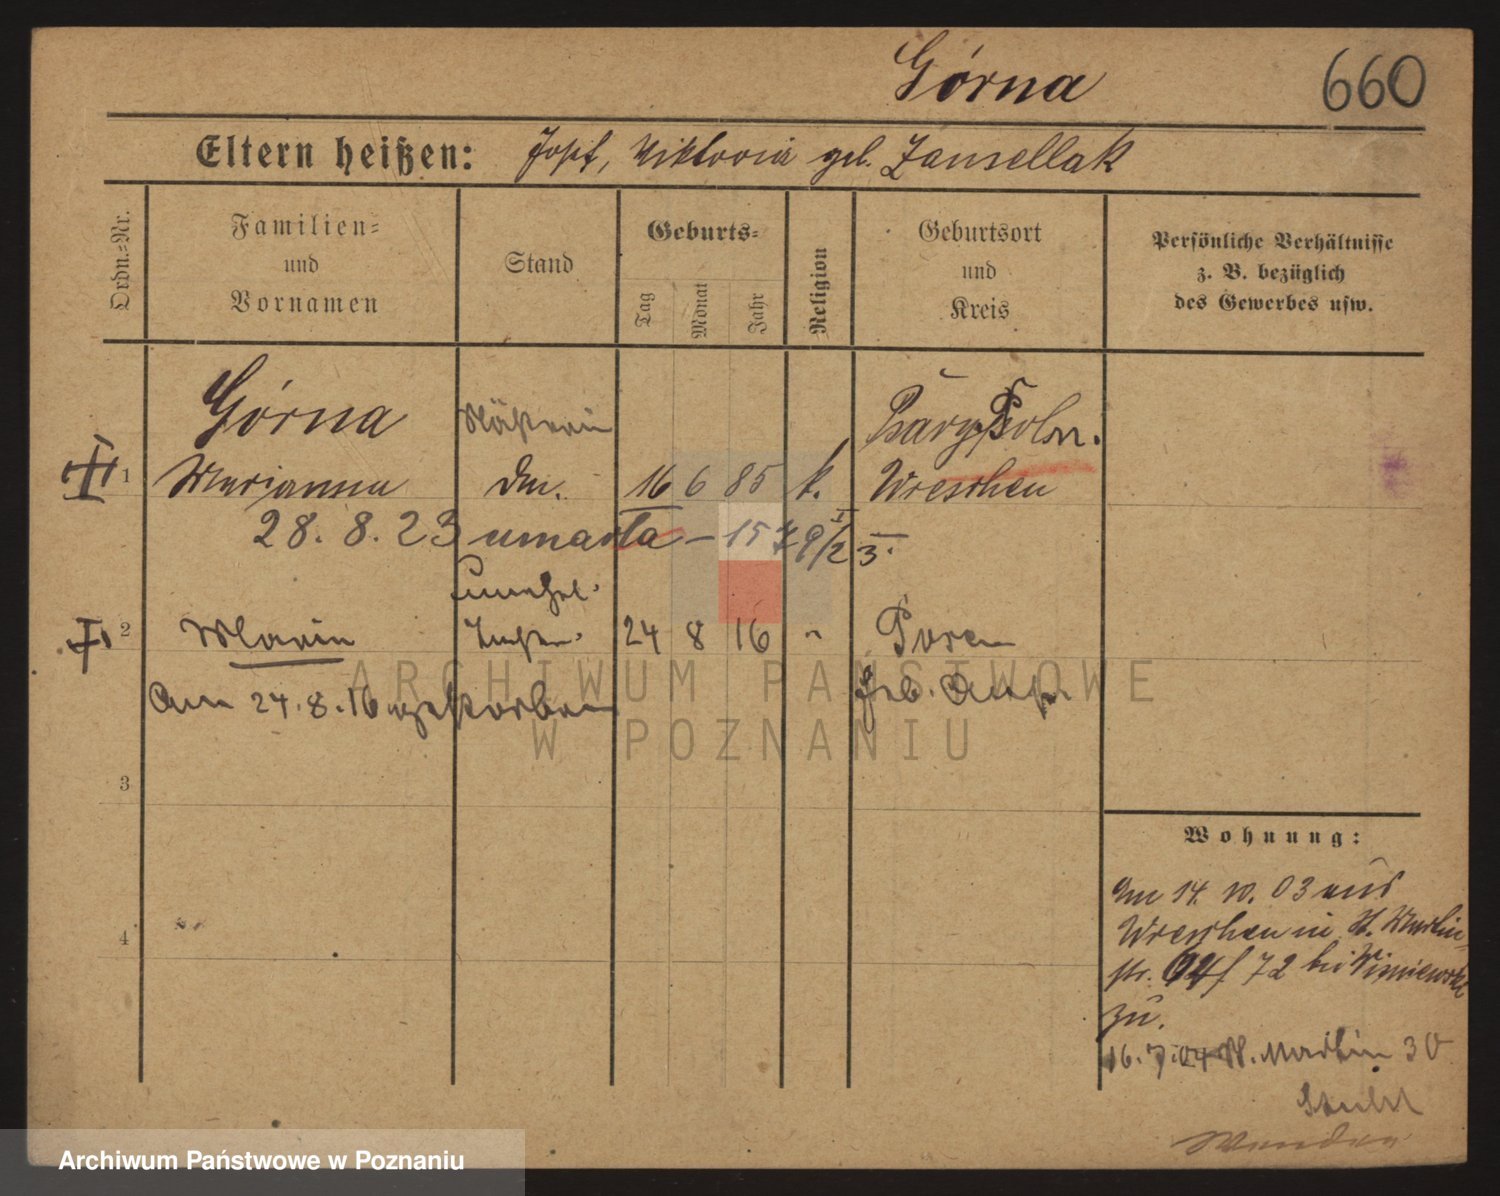 Górna 660
Eltern heißen: Josef, Viktoria geb. Zamsellak
Ordn.=Nr.
Familien=
und
Vornamen
Stand
Geburts=
Tag
Monat
Jahr
Religion
Geburtsort
und
Kreis
Persönliche Verhältnisse
z. B. bezüglich
des Gewerbes usw.
Górna Näherin
1 Marianna 16 6 85 k. Wreschen
28. 8. 23 umarła – 15
unehel.
2 Maria Tochter 24 8 16 " Posen
Am 24.8.16 gestorben
3
4
Wohnung:
Am 14. 10. 03 aus
Wreschen in St. Martin
str. 72 bei Wisniewski
zu.
16. 7. 04 St. Martin 30
Wenden
ARCHIWUM PAŃSTWOWE
W POZNANIU
Archiwum Państwowe w Poznaniu